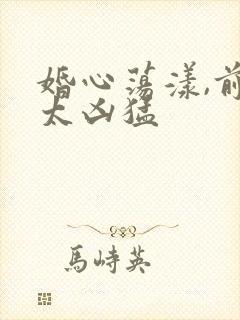 婚心荡漾,前
太凶猛
馬峙英